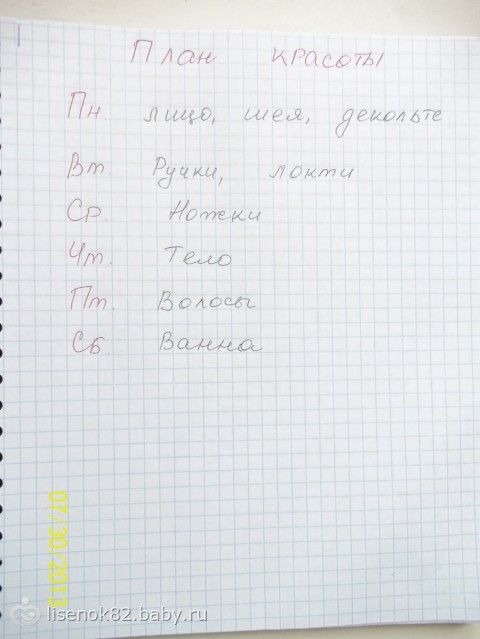 План красоты
Пн. лицо, шея, декольте
Вт. Ручки, локти
Ср. Ножки
Чт. Тело
Пт. Волосы
Сб. Ванна
07/30/2013
lisenok82.baby.ru